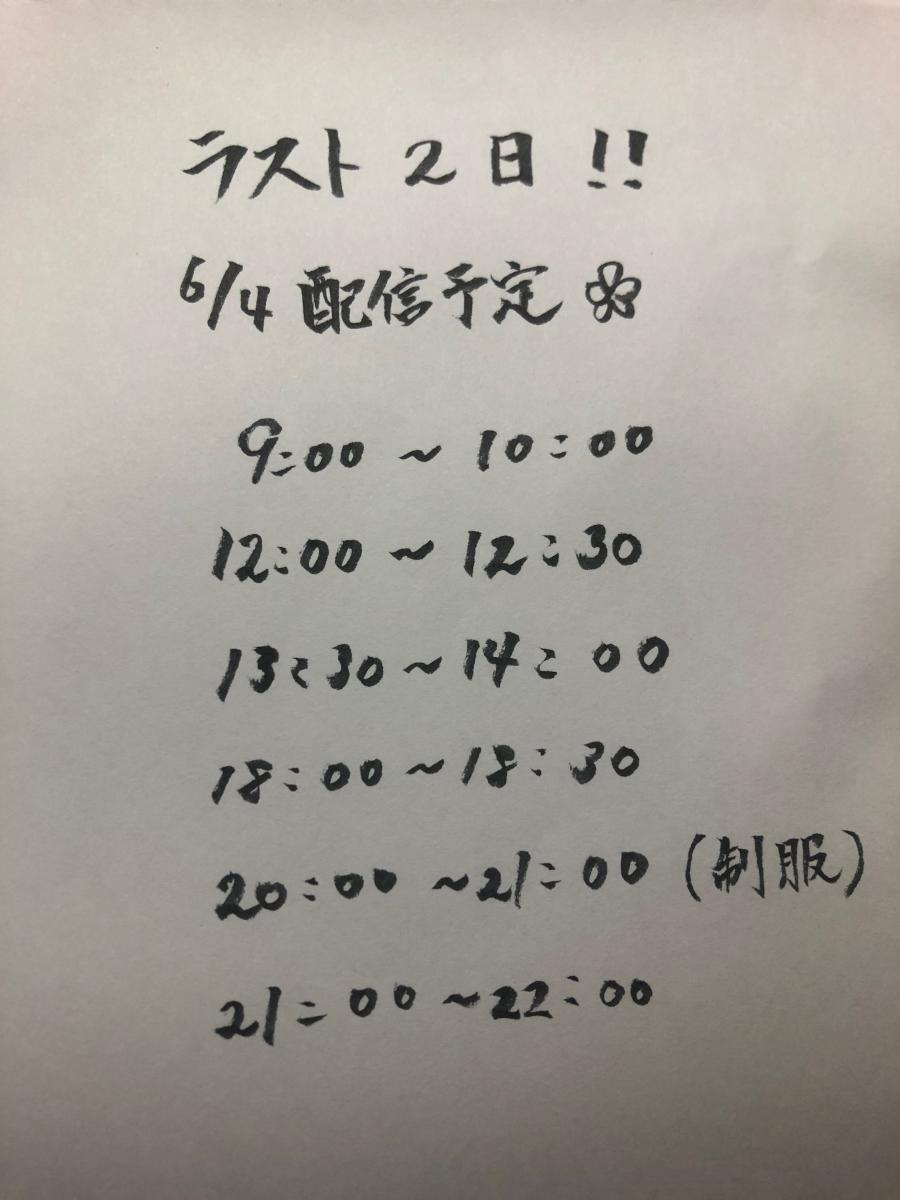 ラスト2日!!
6/4 配信予定
9:00 ~ 10:00
12:00 ~ 12:30
13:30 ~ 14:00
18:00 ~ 18:30
20:00 ~21:00 (制服)
21:00 ~22:00